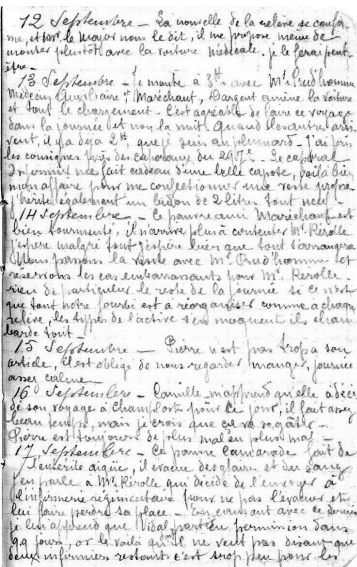 12 Septembre — La nouvelle de la relève se confir
me, et Mr. le Major nous le dit, il me propose même de
monter plustôt avec la voiture médicale. je le ferai peut
être
13 Septembre — Je monte à 3h avec Mr Prud'homme
Médecin Auxiliaire & Maréchant, Dargent amène la voiture
et tout le chargement. C'est agréable de faire ce voyage
dans la journée et non la nuit. Quand les autres arri
vent, il y a déjà 2h que je suis au plumard. J'ai pris
les consignes près des caporaux du 297e. Le caporal
Infirmier me fait cadeau d'une belle capote, voilà bien
mon affaire pour me confectionner une veste propre
j'hérite également un bidon de 2 litres tout neuf
14 Septembre — Le pauvre ami Maréchant est
bien tourmenté, il n'arrive plus à contenter Mr. Rerolle
j'espère malgré tout j'espère bien que tout s'arrangera
Nous passons la visite avec Mr Prud'homme et
réservons les cas embarrassants pour Mr. Rerolle
rien de particulier le reste de la journée si ce n'est
que tout notre fourbi est à réorganiser comme à chaque
relève, les types de l'active s'en moquent ils cham
barde tout
15 Septembre — Pierre n'est pas trop à son
article, il est obligé de nous regarder manger, journée
assez calme
16 Septembre — Camille m'apprend qu'elle a déci
dé son voyage à Champfort pour ce jour, il fait assez
beau temps, mais je crois que ça va se gâter
Pierre est toujours de plus mal en plus mal
17 Septembre — Le pauvre camarade fait de
l'entérite aigüe, il évacue des glaires et du sang
j'en parle à Mr. Rerolle qui décide de l'envoyer à
l'infirmerie régimentaire pour ne pas l'évacuer et
lui faire perdre sa place. En causant avec ce dernier
je lui apprend que Vidal part en permission dans
qq jours, or le voilà qu'il ne veut pas disant que
deux infirmiers restant c'est trop peu pour les